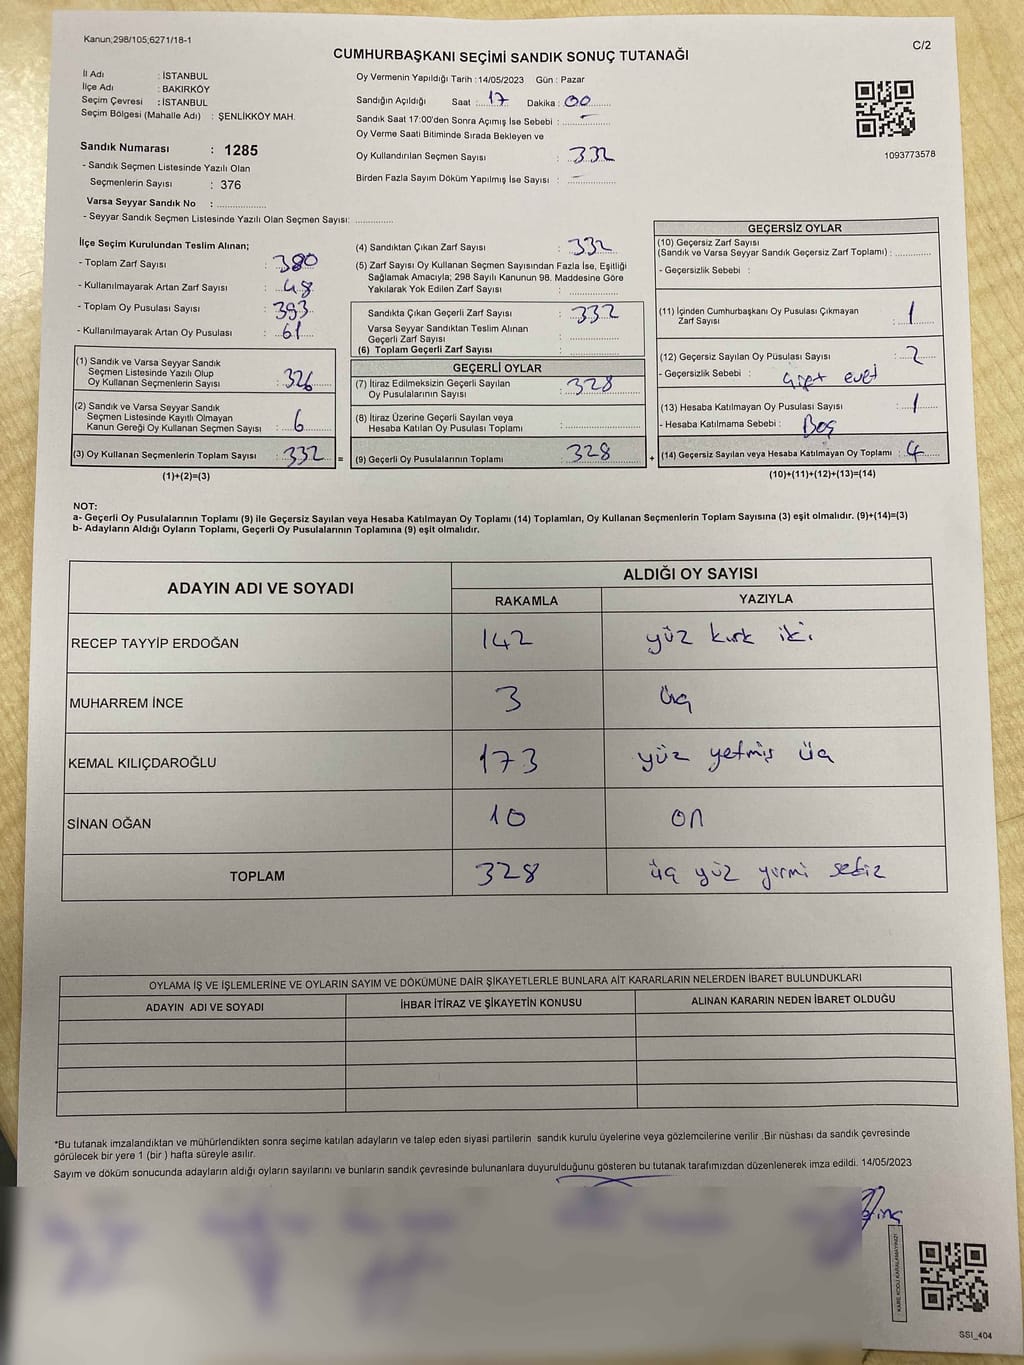 Kanun;298/105;6271/18-1
C/2
CUMHURBAŞKANI SEÇİMİ SANDIK SONUÇ TUTANAĞI
İl Adı : İSTANBUL
İlçe Adı : BAKIRKÖY
Seçim Çevresi : İSTANBUL
Seçim Bölgesi (Mahalle Adı) : ŞENLİKKÖY MAH.
Sandık Numarası : 1285
- Sandık Seçmen Listesinde Yazılı Olan
Seçmenlerin Sayısı : 376
Varsa Seyyar Sandık No :
- Seyyar Sandık Seçmen Listesinde Yazılı Olan Seçmen Sayısı:
Oy Vermenin Yapıldığı Tarih : 14/05/2023 Gün : Pazar
Sandığın Açıldığı Saat : 17 Dakika : 00
Sandık Saat 17:00'den Sonra Açımış İse Sebebi : -
Oy Verme Saati Bitiminde Sırada Bekleyen ve
Oy Kullandırılan Seçmen Sayısı : 332
Birden Fazla Sayım Döküm Yapılmış İse Sayısı : -
1093773578
İlçe Seçim Kurulundan Teslim Alınan;
- Toplam Zarf Sayısı : 380
- Kullanılmayarak Artan Zarf Sayısı : 48
- Toplam Oy Pusulası Sayısı : 393
- Kullanılmayarak Artan Oy Pusulası : 61
(1) Sandık ve Varsa Seyyar Sandık
Seçmen Listesinde Yazılı Olup
Oy Kullanan Seçmenlerin Sayısı : 326
(2) Sandık ve Varsa Seyyar Sandık
Seçmen Listesinde Kayıtlı Olmayan
Kanun Gereği Oy Kullanan Seçmen Sayısı : 6
(3) Oy Kullanan Seçmenlerin Toplam Sayısı : 332 =
(1)+(2)=(3)
(4) Sandıktan Çıkan Zarf Sayısı : 332
(5) Zarf Sayısı Oy Kullanan Seçmen Sayısından Fazla İse, Eşitliği
Sağlamak Amacıyla; 298 Sayılı Kanunun 98. Maddesine Göre
Yakılarak Yok Edilen Zarf Sayısı :
Sandıkta Çıkan Geçerli Zarf Sayısı : 332
Varsa Seyyar Sandıktan Teslim Alınan
Geçerli Zarf Sayısı :
(6) Toplam Geçerli Zarf Sayısı :
GEÇERLİ OYLAR
(7) İtiraz Edilmeksizin Geçerli Sayılan
Oy Pusulalarının Sayısı : 328
(8) İtiraz Üzerine Geçerli Sayılan veya
Hesaba Katılan Oy Pusulası Toplamı :
(9) Geçerli Oy Pusulalarının Toplamı : 328 +
GEÇERSİZ OYLAR
(10) Geçersiz Zarf Sayısı
(Sandık ve Varsa Seyyar Sandık Geçersiz Zarf Toplamı) :
- Geçersizlik Sebebi :
(11) İçinden Cumhurbaşkanı Oy Pusulası Çıkmayan
Zarf Sayısı : 1
(12) Geçersiz Sayılan Oy Pusulası Sayısı : 2
- Geçersizlik Sebebi : Çift evet
(13) Hesaba Katılmayan Oy Pusulası Sayısı : 1
- Hesaba Katılmama Sebebi : Boş
(14) Geçersiz Sayılan veya Hesaba Katılmayan Oy Toplamı : 4
(10)+(11)+(12)+(13)=(14)
NOT:
a- Geçerli Oy Pusulalarının Toplamı (9) ile Geçersiz Sayılan veya Hesaba Katılmayan Oy Toplamı (14) Toplamları, Oy Kullanan Seçmenlerin Toplam Sayısına (3) eşit olmalıdır. (9)+(14)=(3)
b- Adayların Aldığı Oyların Toplamı, Geçerli Oy Pusulalarının Toplamına (9) eşit olmalıdır.
ADAYIN ADI VE SOYADI
ALDIĞI OY SAYISI
RAKAMLA YAZIYLA
RECEP TAYYİP ERDOĞAN 142 yüz kırk iki
MUHARREM İNCE 3 üç
KEMAL KILIÇDAROĞLU 173 yüz yetmiş üç
SİNAN OĞAN 10 on
TOPLAM 328 üç yüz yirmi sekiz
OYLAMA İŞ VE İŞLEMLERİNE VE OYLARIN SAYIM VE DÖKÜMÜNE DAİR ŞİKAYETLERLE BUNLARA AİT KARARLARIN NELERDEN İBARET BULUNDUKLARI
ADAYIN ADI VE SOYADI İHBAR İTİRAZ VE ŞİKAYETİN KONUSU ALINAN KARARIN NEDEN İBARET OLDUĞU
*Bu tutanak imzalandıktan ve mühürlendikten sonra seçime katılan adayların ve talep eden siyasi partilerin sandık kurulu üyelerine veya gözlemcilerine verilir .Bir nüshası da sandık çevresinde
görülecek bir yere 1 (bir ) hafta süreyle asılır.
Sayım ve döküm sonucunda adayların aldığı oyların sayılarını ve bunların sandık çevresinde bulunanlara duyurulduğunu gösteren bu tutanak tarafımızdan düzenlenerek imza edildi. 14/05/2023
KARE KODU KARALAMAYINIZ!
SSI_404